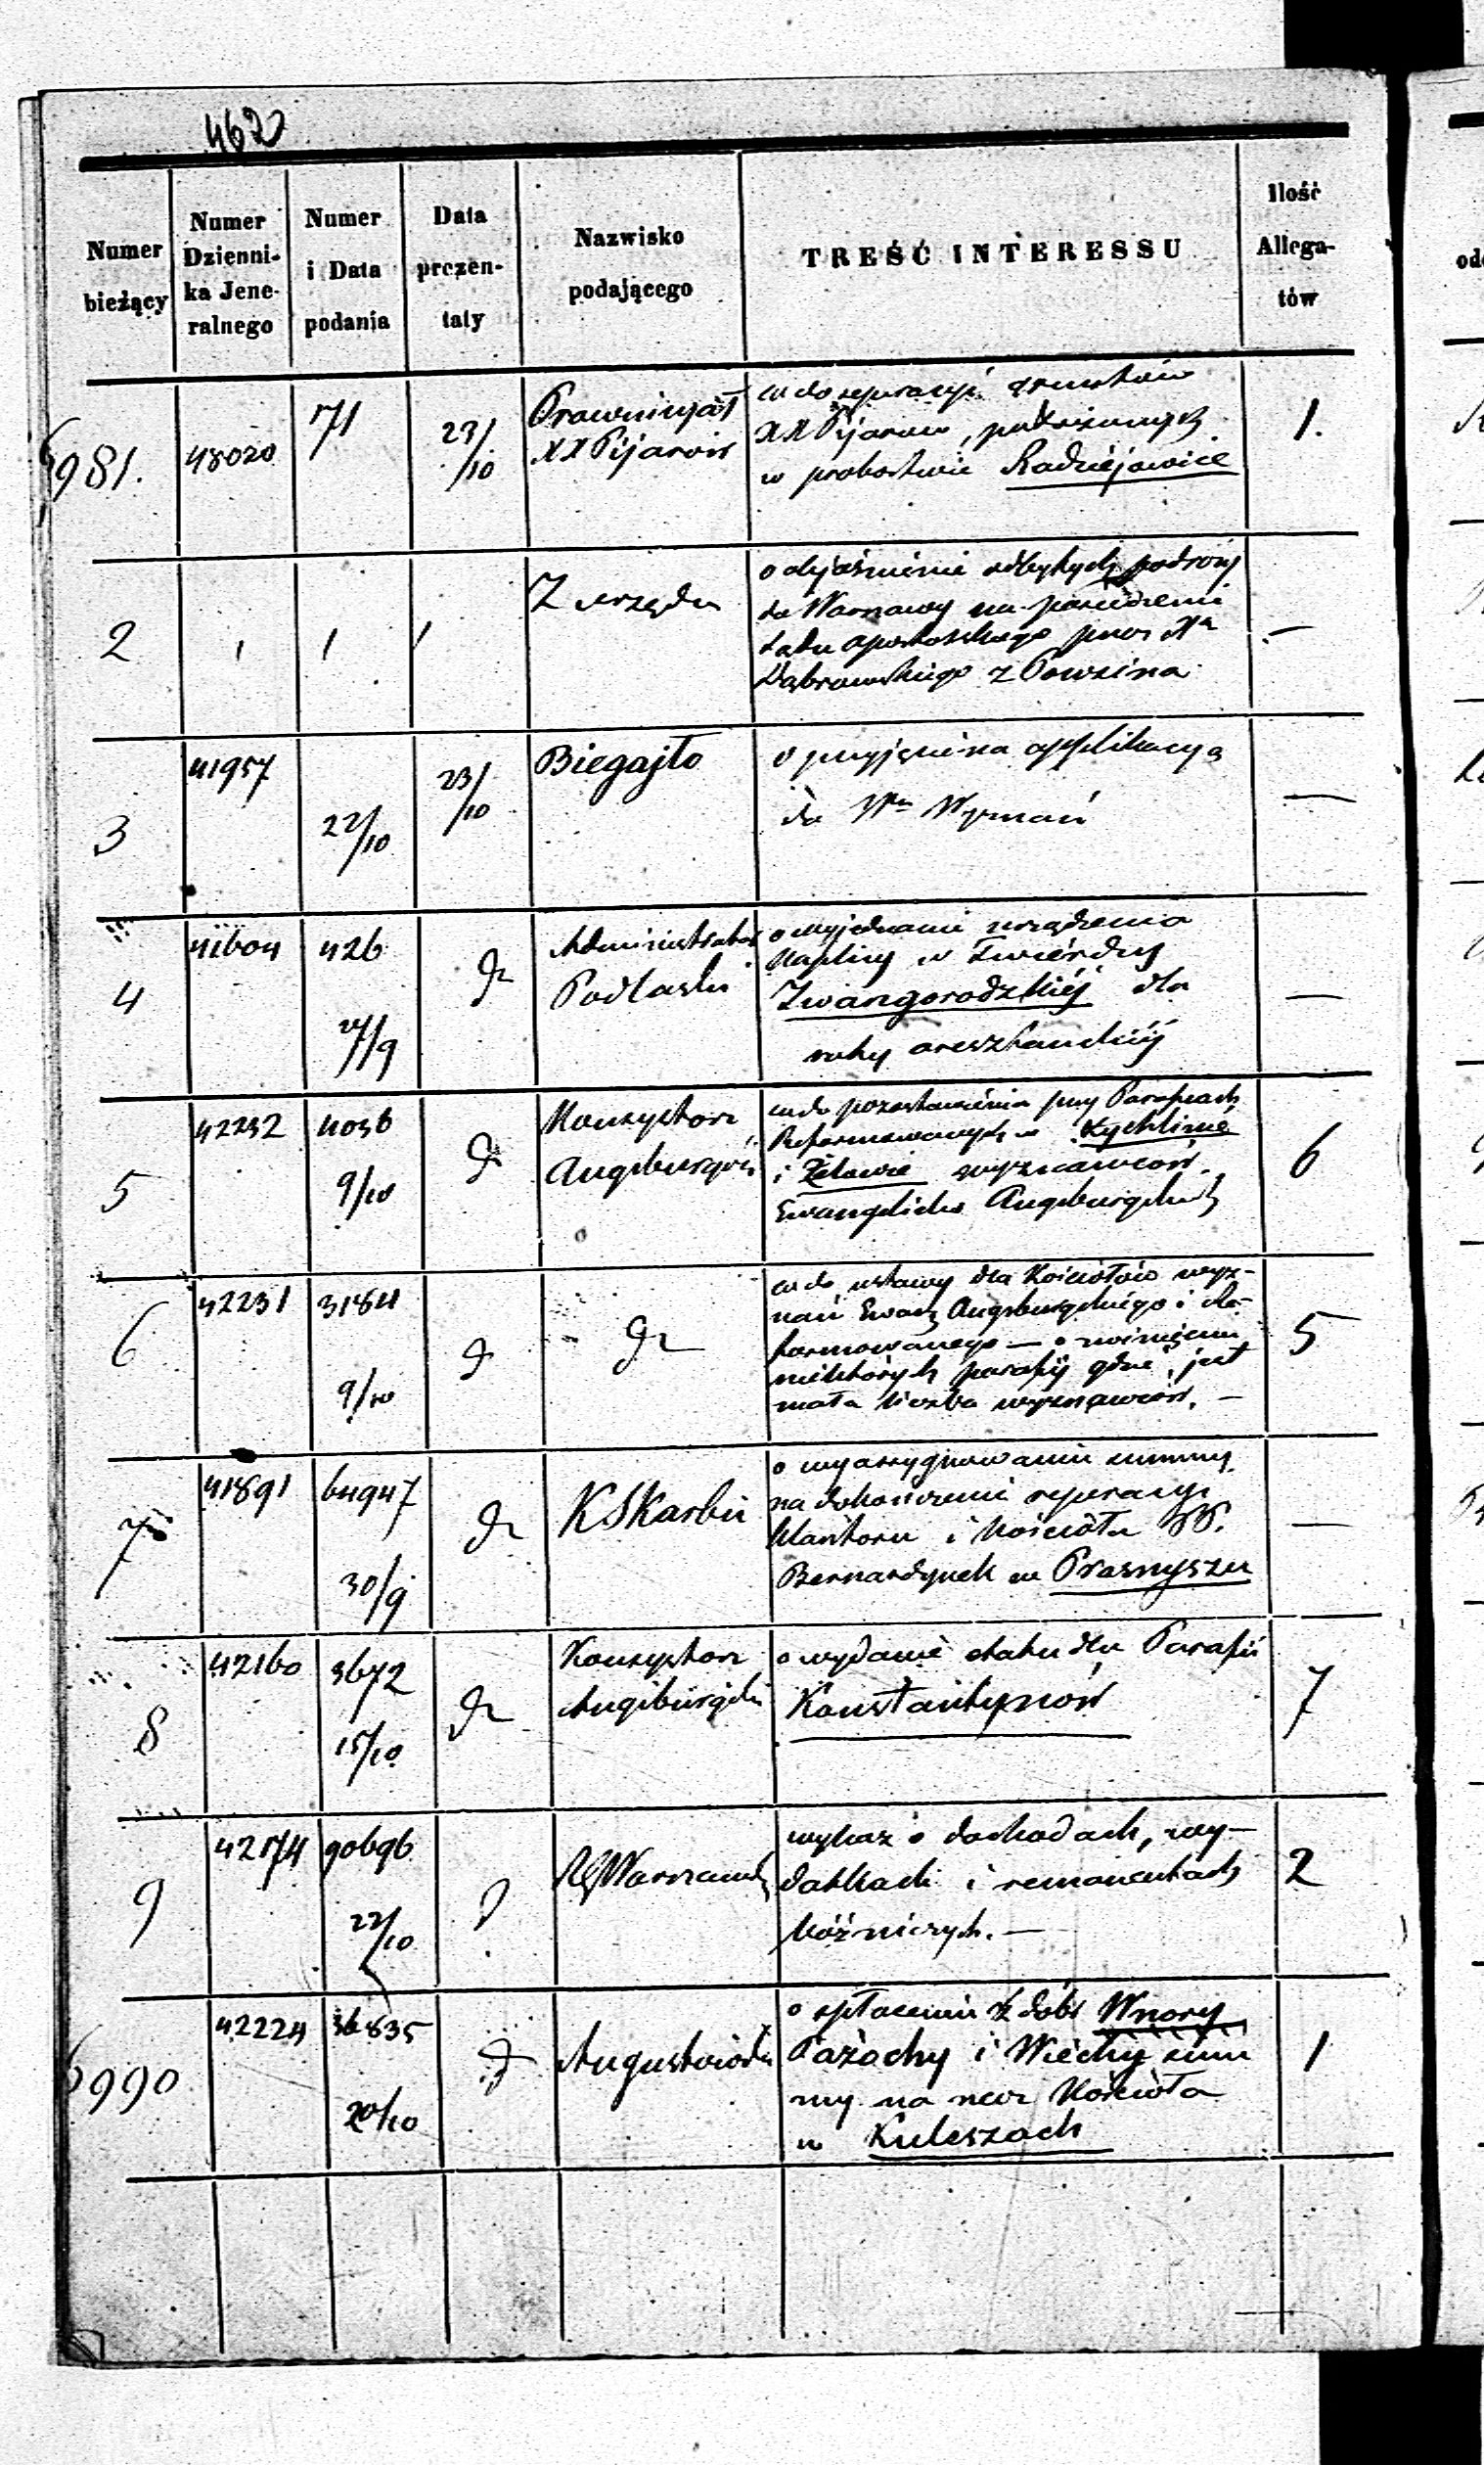 462
Numer bieżący
Numer Dzienni- ka Jene- ralnego
Numer i Data podania
Data prezen- taty
Nazwisko podającego
TREŚĆ INTERESSU
Ilość Allega- tów
6981.
48020
71
23/10
Prawincyał
XX Pijarów
w do separacyi gruntów
XX Pijarów, położonych
w probostwie Radziejowice
1.
2
Z urzędu
o objaśnienie odbytych podróży
do Warszawy na posiedzenie
sądu apostolskiego przez Xa
Dąbrowskiego z Powsina
—
3
41957
22/10
23/10
Biegajło
o przyjęcie na applikacyą
do Wu Wyznań
—
4
41604
426
Administrator
Podlaski
o wyjednanie urządzenia
kaplicy w Twierdzy
Iwangorodzkiej dla
roty aresztanckiej
—
5
42232
4036
9/10
Konsystorz
Augsburgski
w do pozostawienia przy Parafiach
Reformowanych w Żychlinie
i Zelowie wyznawców
Ewangelicko Augsburgskich
6
6
42231
3184
9/10
w do ustawy dla Kościołów wyz-
nań Ewang Augsburgskiego i Re-
formowanego — o zwinięciu
niektórych parafij gdzie jest
mała liczba wyznawców. —
5
7
41891
64947
30/9
K S Karbu
o wyassygnowanie summy
na dokończenie reperacyi
Klasztoru i Kościoła PP.
Bernardynek w Prasnyszu
—
8
42160
3672
15/10
Konsystorz
Augsburgski
o wydanie etatu dla Parafii
Konstantynów
7
9
42174
90696
22/10
RG Warszawski
wykaz o dochodach, wy-
datkach i remanentach
bóżniczych. —
2
6990
42224
36835
20/10
Augustowski
o spłacenie z dóbr Wnory
Pażochy i Wiechy sum
my na rzecz Kościoła
w Kuleszach
1